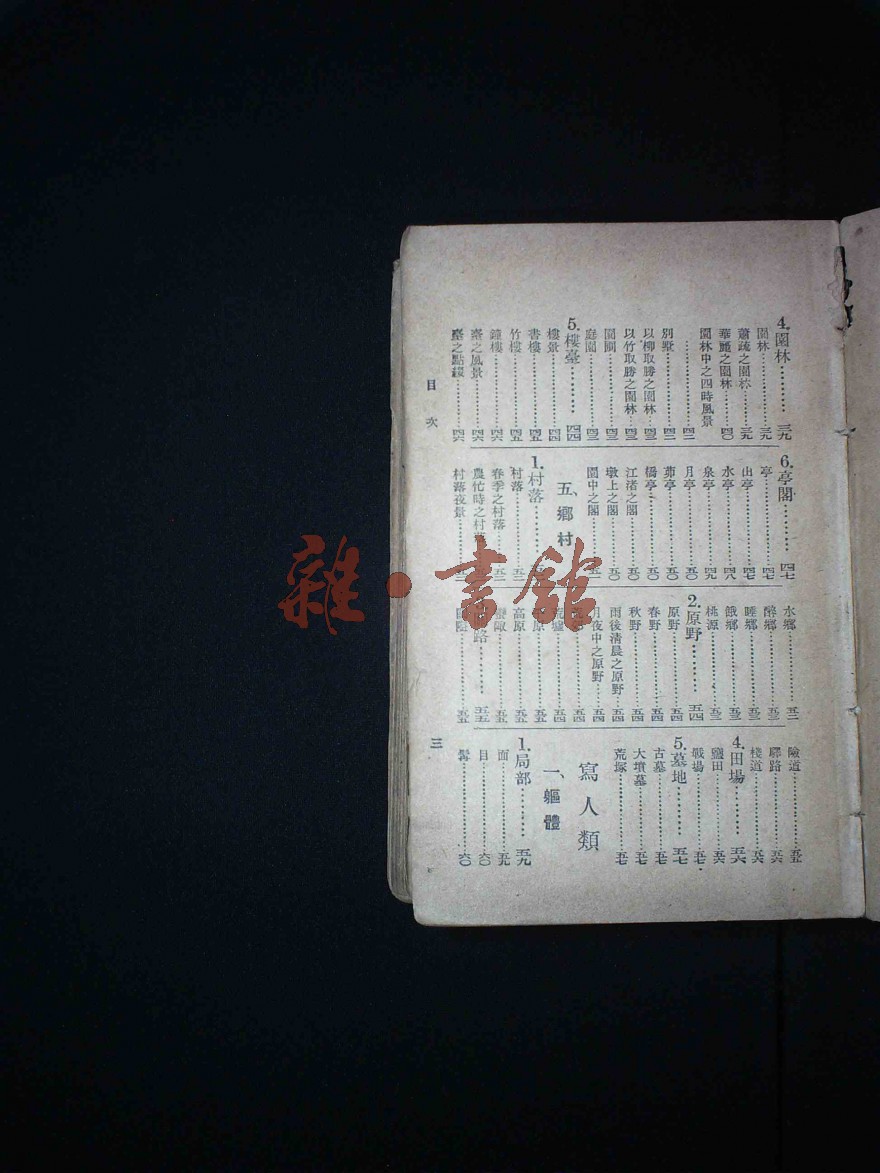 4.園林………三九
園林………三九
蕭疏之園林…三九
華麗之園林…四〇
園林中之四時風景
………四一
別墅………四二
以柳取勝之園林…四三
以竹取勝之園林…四三
園圃………四三
庭園………四三
5.樓臺………四四
樓景………四四
書樓………四五
竹樓………四五
鐘樓………四六
臺之風景………四六
臺之點綴………四六
6.亭閣………四七
亭………四七
山亭………四七
水亭………四八
泉亭………四九
月亭………五〇
茆亭………五〇
橋亭………五〇
江渚之閣………五〇
墩上之閣………五〇
園中之閣………五一
五、鄉村
1.村落
村落………五一
春季之村落…五二
農忙時之村
村落夜景
水鄉………五二
醉鄉………五三
睡鄉………五三
餓鄉………五三
桃源………五三
2.原野………五四
原野………五四
春野………五四
秋野………五四
雨後清晨之原野…五四
月夜中之原野…五四
五四
墟………五四
原………五五
高原………五五
五五
路………五五
五五
險道………五五
驛路………五六
棧道………五六
4.田場………五六
鹽田………五六
戰場………五七
5.墓地………五七
古墓………五七
大墳墓………五七
荒塚………五七
寫人類
一、軀體
1.局部………五九
面………五九
目………六〇
髯………六〇
目次
三
雜·書館